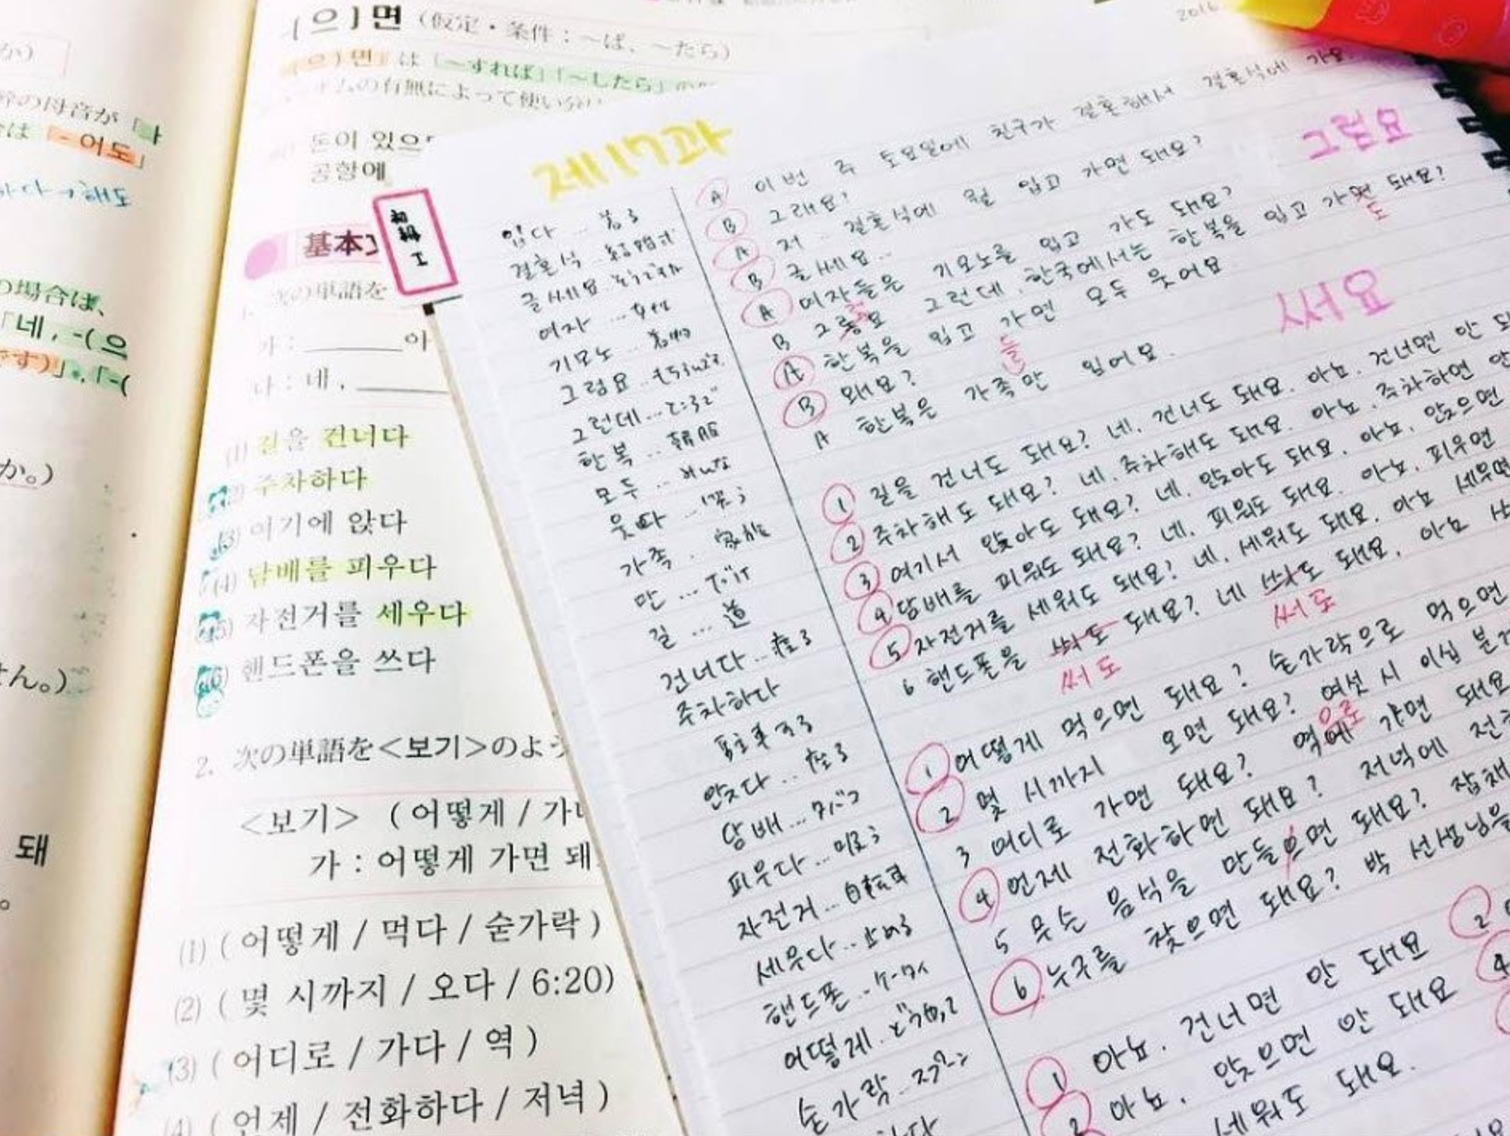 か)
幹の母音が「ㅏ
は「-어도」
하다→해도
の場合は、
「네, -(으
です)」。「-(
か。)
せん。)
돼
。
-(으)면 (仮定・条件：～ば、～たら)
(으)면』は「～すれば」「～したら」の
ムの有無によって使い分け
돈이 있으
공항에
基本
1. 次の単語を
가 : ______아
나 : 네, ______
(1) 길을 건너다
(2) 주차하다
(3) 여기에 앉다
(4) 담배를 피우다
(5) 자전거를 세우다
(6) 핸드폰을 쓰다
2. 次の単語を<보기>のよう
<보기> (어떻게 / 가
가 : 어떻게 가면 돼
(1) (어떻게 / 먹다 / 숟가락)
(2) (몇 시까지 / 오다 / 6:20)
(3) (어디로 / 가다 / 역)
(4) (언제 / 전화하다 / 저녁)
初級 I
2016
제17과
입다 … 着る
결혼식 … 結婚式
글쎄요
여자 … 女性
기모노 … 着物
그럼요
그런데 …
한복 … 韓服
모두 … みんな
웃다 … 笑う
가족 … 家族
만 … だけ
길 … 道
건너다 … 渡る
주차하다
駐車する
앉다 … 座る
담배 … タバコ
피우다
자전거 … 自転車
세우다 … 止める
핸드폰
어떻게 … どうやって
숟가락 … スプーン
A 이번 주 토요일에 친구가 결혼해서 결혼식에 가요.
B 그래요?
A 저.. 결혼식에 뭘 입고 가면 돼요?
B 글쎄요..
A 여자들은 기모노를 입고 가도 돼요?
그럼요
B 그럼요 그런데, 한국에서는 한복을 입고 가면 돼요?
도
A 한복을 입고 가면 모두 웃어요
들
B 왜요?
써요
A 한복은 가족만 입어요.
① 길을 건너도 돼요? 네, 건너도 돼요. 아뇨, 건너면 안 돼
② 주차해도 돼요? 네, 주차해도 돼요. 아뇨, 주차하면 안
③ 여기서 앉아도 돼요? 네, 앉아도 돼요. 아뇨, 앉으면
④ 담배를 피워도 돼요? 네, 피워도 돼요. 아뇨, 피우면
⑤ 자전거를 세워도 돼요? 네, 세워도 돼요. 아뇨 세우면
6 핸드폰을 쓰도 돼요? 네 쓰도 돼요. 아뇨
써도 써도
① 어떻게 먹으면 돼요? 숟가락으로 먹으면
② 몇 시까지 오면 돼요? 여섯 시 이십 분
으로
3 어디로 가면 돼요? 역에 가면 돼요
④ 언제 전화하면 돼요? 저녁에 전
5 무슨 음식을 만들으면 돼요? 잡채
⑥ 누구를 찾으면 돼요? 박 선생님을
① 아뇨, 건너면 안 돼요 ②
② 아뇨, 앉으면 안 돼요 ④
세워도 돼요.